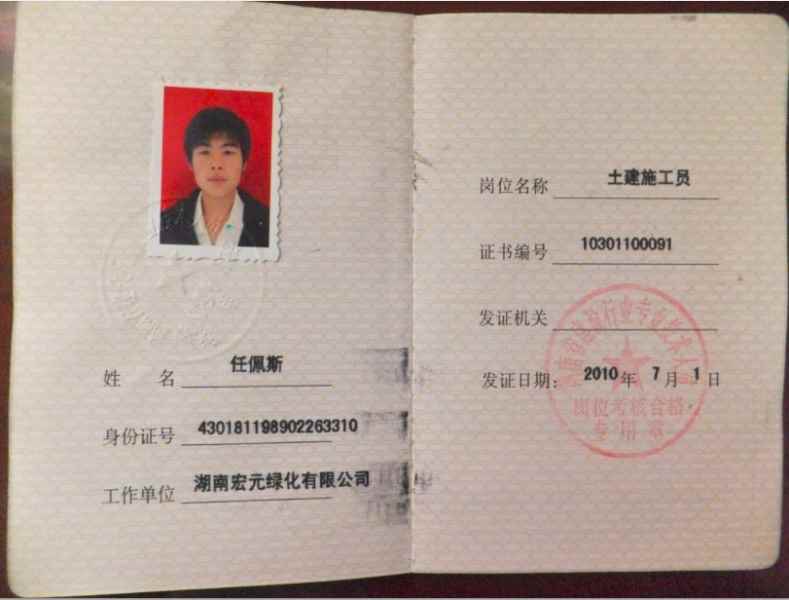 姓 名 任佩斯
身份证号 430181198902263310
工作单位 湖南宏元绿化有限公司
岗位名称 土建施工员
证书编号 10301100091
发证机关
发证日期: 2010年 7月 1日
岗位考核合格
专用章